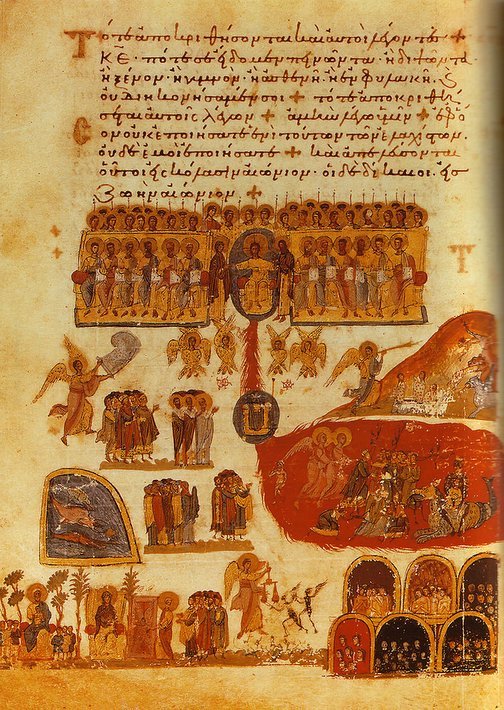 Τότε ἀποκριθήσονται καὶ αὐτοὶ λέγοντες +
ΚΕ · πότε σε εἴδομεν πεινῶντα · ἢ διψῶντα
ἢ ξένον · ἢ γυμνὸν · ἢ ἀσθενῆ · ἢ ἐν φυλακῇ · καὶ
οὐ διηκονήσαμέν σοι + τότε ἀποκριθή
σεται αὐτοῖς λέγων + ἀμὴν λέγω ὑμῖν + ἐφ ὅ
σον οὐκ ἐποιήσατε ἑνὶ τούτων τῶν ἐλαχίστων ·
οὐδὲ ἐμοὶ ἐποιήσατε + καὶ ἀπελεύσονται
οὗτοι εἰς κόλασιν αἰώνιον · οἱ δὲ δίκαιοι εἰς
ζωὴν αἰώνιον +
Τ